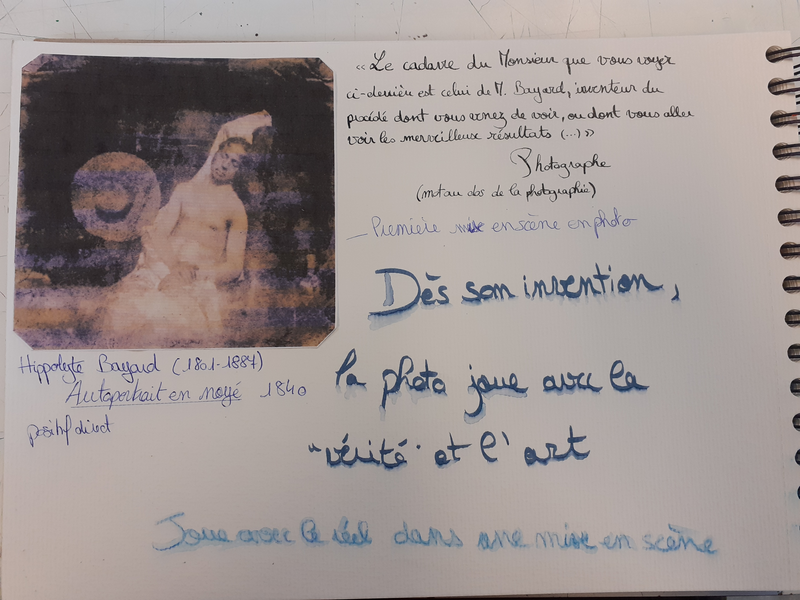 « Le cadavre du Monsieur que vous voyez
ci-derrière est celui de M. Bayard, inventeur du
procédé dont vous venez de voir, ou dont vous allez
voir les merveilleux résultats (...) »
Photographe
(mot au dos de la photographie)
— Première mise en scène en photo
Dès son invention,
la photo joue avec la
"vérité" et l'art
Hippolyte Bayard (1801-1887)
Autoportrait en noyé 1840
positif direct
Joue avec le réel dans une mise en scène